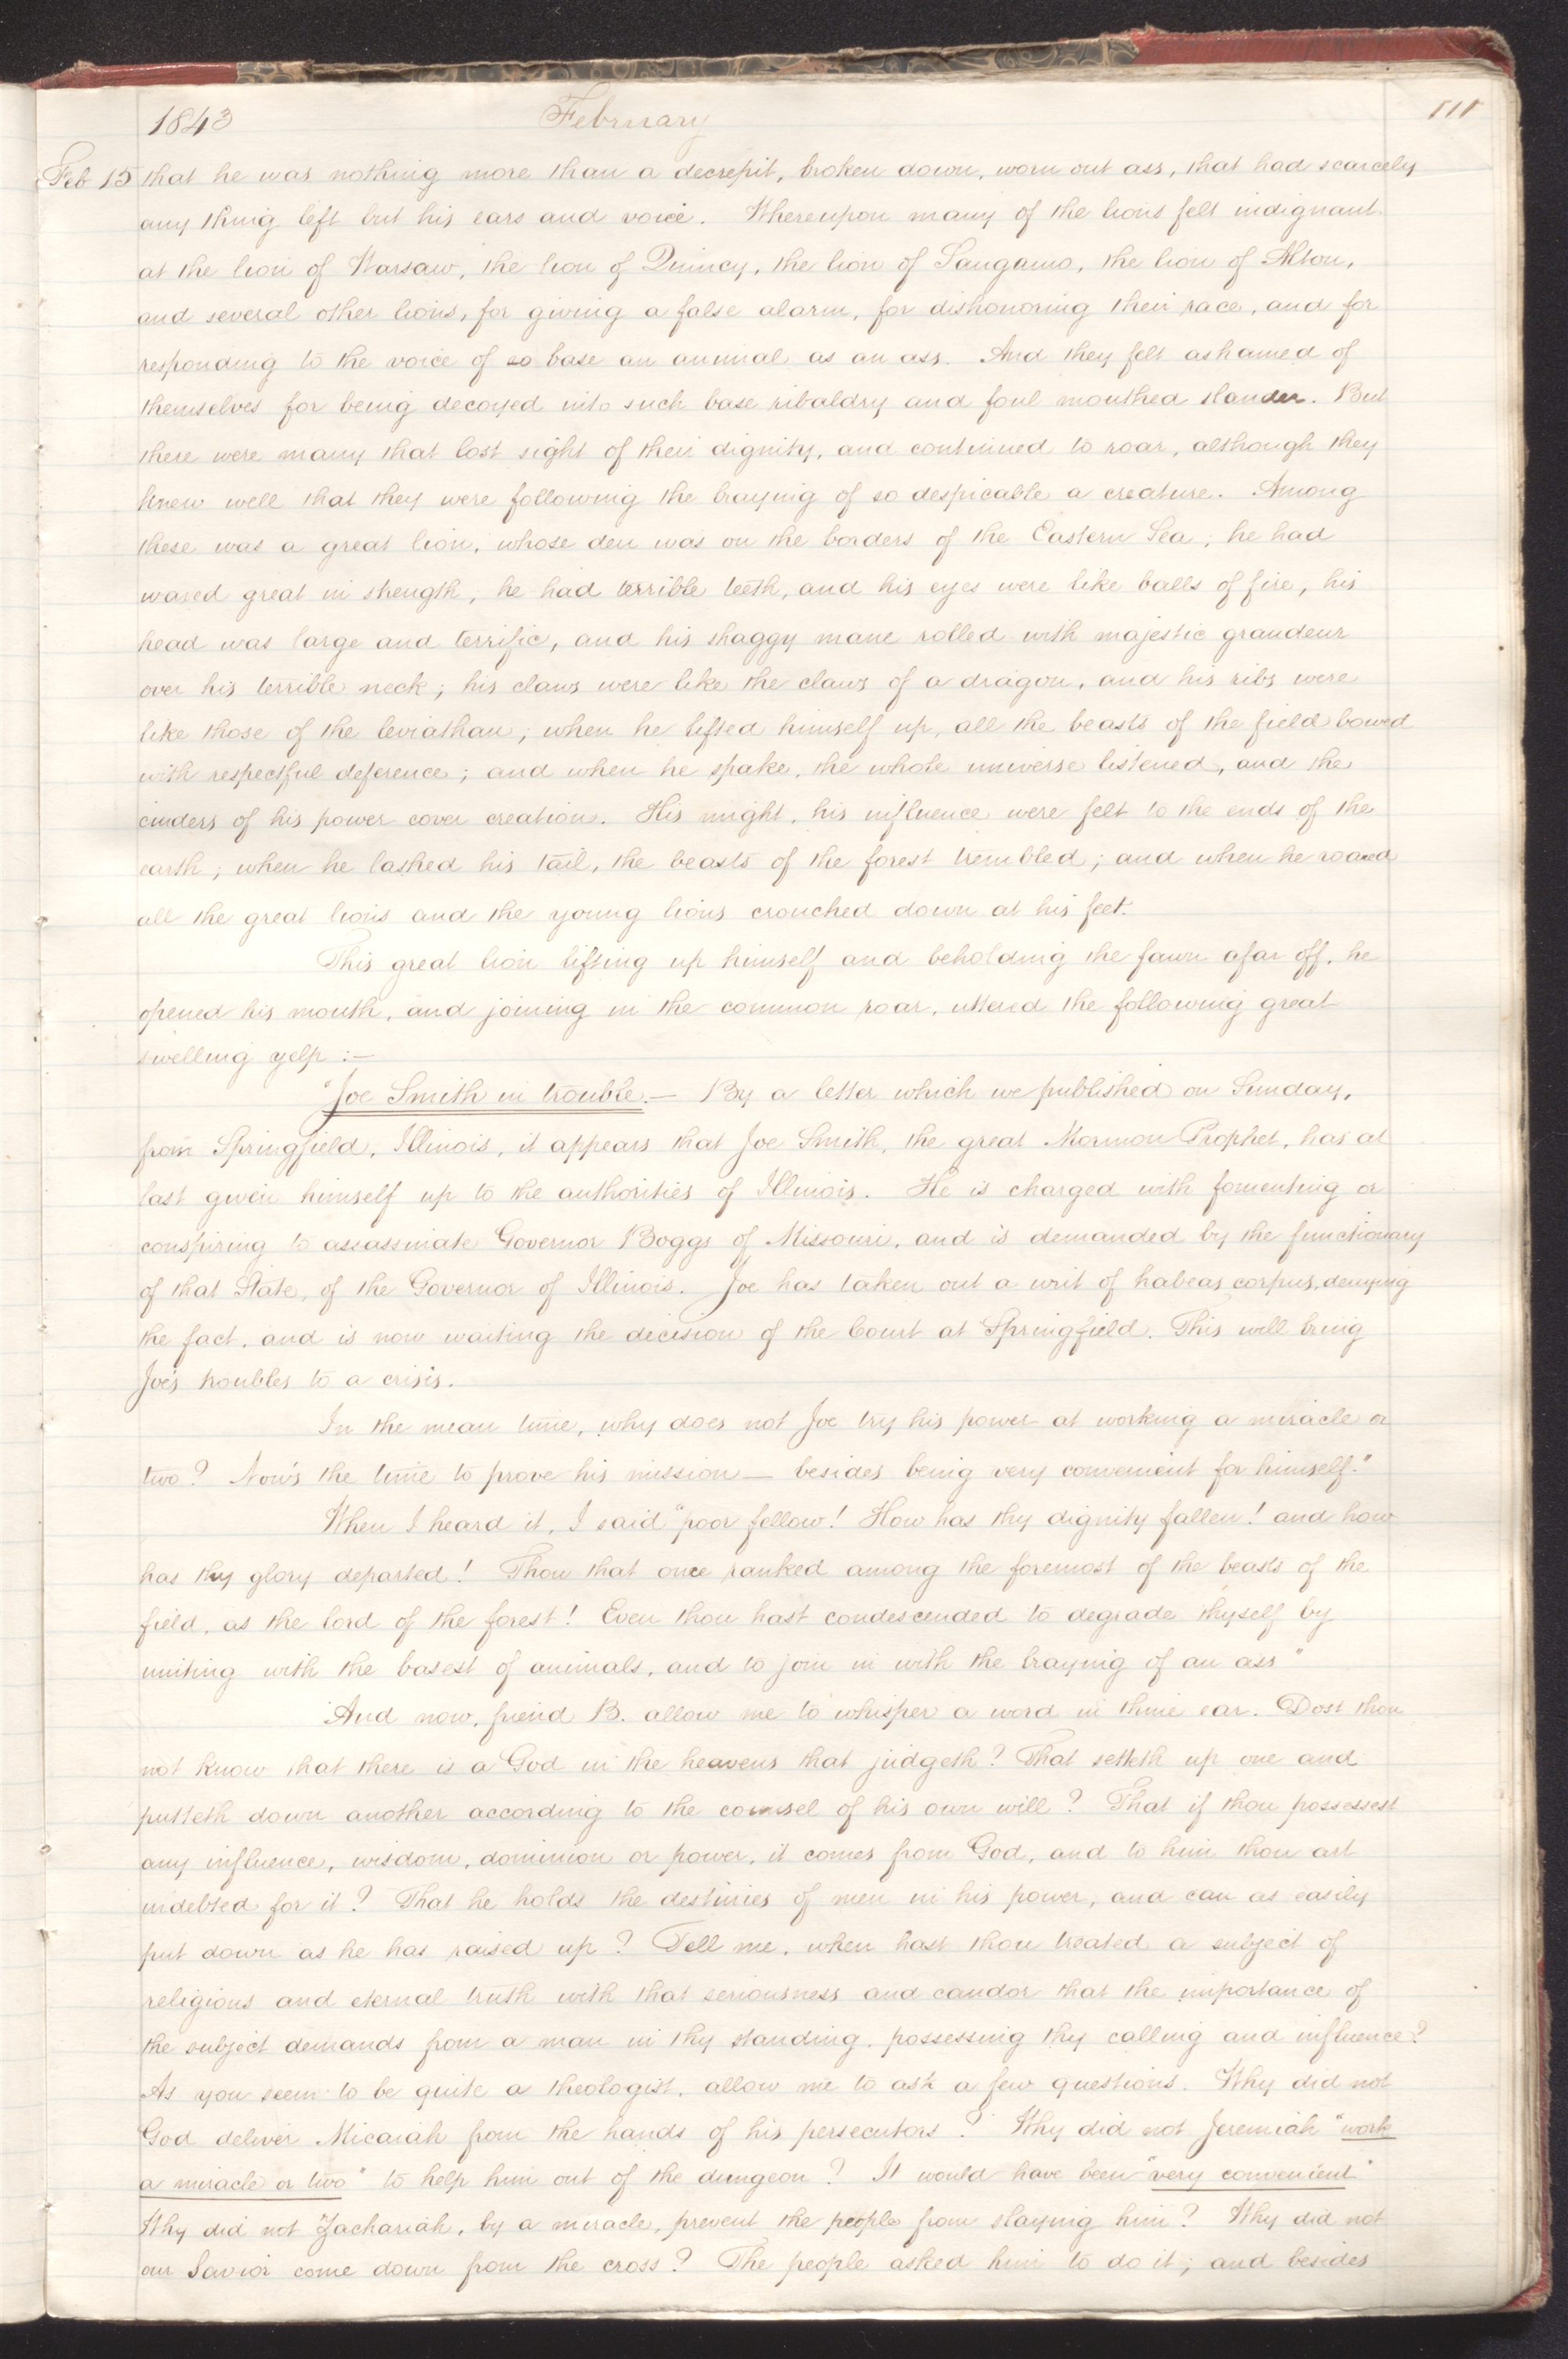 1843 February 111
Feb 15 that he was nothing more than a decrepit, broken down, worn out ass, that had scarcely
any thing left but his ears and voice. Whereupon many of the lions felt indignant
at the lion of Warsaw, the lion of Quincy, the lion of Sangamo, the lion of Alton,
and several other lions, for giving a false alarm, for dishonoring their race, and for
responding to the voice of so base an animal as an ass. And they felt ashamed of
themselves for being decoyed into such base ribaldry and foul mouthed slander. But
there were many that lost sight of their dignity, and continued to roar, although they
knew well that they were following the braying of so despicable a creature. Among
these was a great lion, whose den was on the borders of the Eastern Sea; he had
waxed great in strength; he had terrible teeth, and his eyes were like balls of fire; his
head was large and terrific, and his shaggy mane rolled with majestic grandeur
over his terrible neck; his claws were like the claws of a dragon, and his ribs were
like those of the leviathan; when he lifted himself up, all the beasts of the field bowed
with respectful deference; and when he spake, the whole universe listened, and the
cinders of his power cover creation. His might, his influence were felt to the ends of the
earth; when he lashed his tail, the beasts of the forest trembled; and when he roared
all the great lions and the young lions crouched down at his feet.
This great lion lifting up himself and beholding the fawn afar off, he
opened his mouth, and joining in the common roar, uttered the following great
swelling yelp:—
"Joe Smith in trouble.— By a letter which we published on Sunday,
from Springfield, Illinois, it appears that Joe Smith, the great Mormon Prophet, has at
last given himself up to the authorities of Illinois. He is charged with fomenting or
conspiring to assassinate Governor Boggs of Missouri, and is demanded by the functionary
of that State, of the Governor of Illinois. Joe has taken out a writ of habeas corpus, denying
the fact, and is now waiting the decision of the Court at Springfield. This will bring
Joe's troubles to a crisis.
In the mean time, why does not Joe try his power at working a miracle or
two? Now's the time to prove his mission — besides being very convenient for himself."
When I heard it, I said "poor fellow! How has thy dignity fallen! and how
has thy glory departed! Thou that once ranked among the foremost of the beasts of the
field, as the lord of the forest! Even thou hast condescended to degrade thyself by
uniting with the basest of animals, and to join in with the braying of an ass"
And now, friend B. allow me to whisper a word in thine ear. Dost thou
not know that there is a God in the heavens that judgeth? That setteth up one and
putteth down another according to the counsel of his own will? That if thou possessest
any influence, wisdom, dominion or power, it comes from God, and to him thou art
indebted for it? That he holds the destinies of men in his power, and can as easily
put down as he has raised up? Tell me, when hast thou treated a subject of
religious and eternal truth with that seriousness and candor that the importance of
the subject demands from a man in thy standing, possessing thy calling and influence?
As you seem to be quite a theologist, allow me to ask a few questions. Why did not
God deliver Micaiah from the hands of his persecutors? Why did not Jeremiah "work
a miracle or two" to help him out of the dungeon? It would have been "very convenient"
Why did not Zachariah, by a miracle, prevent the people from slaying him? Why did not
our Savior come down from the cross? The people asked him to do it; and besides